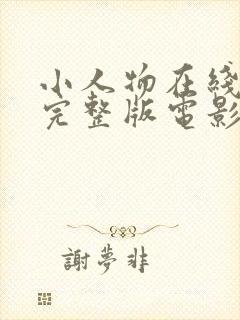 小人物在綫
完整版電影
謝夢非